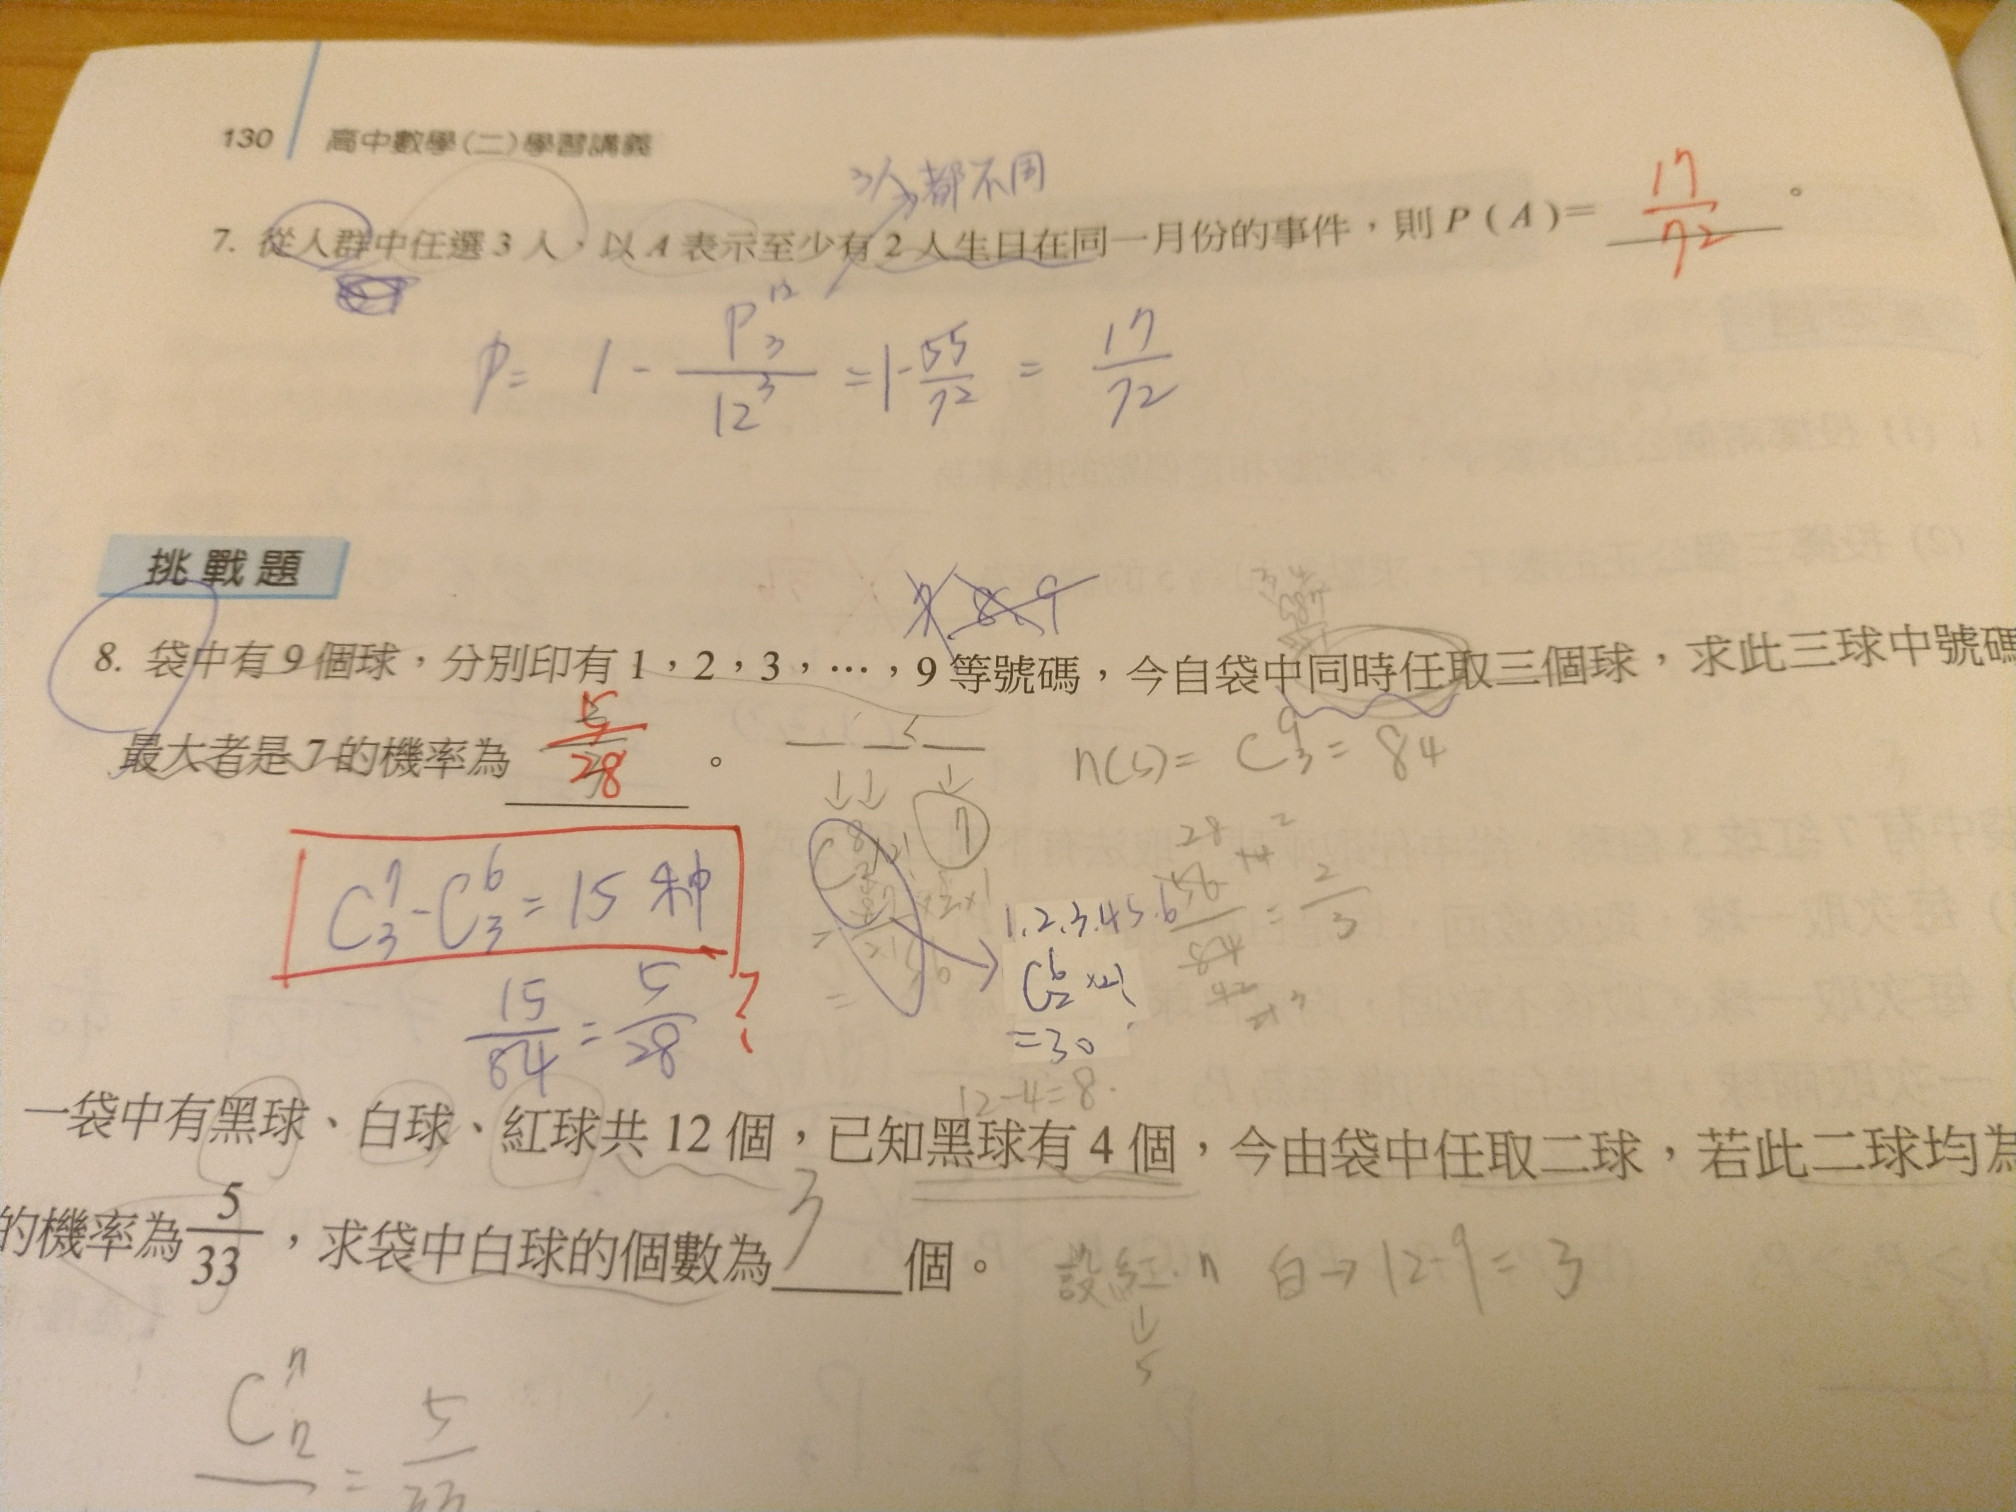 130 高中數學(二)學習講義
3人都不同
7. 從人群中任選 3 人，以 A 表示至少有 2 人生日在同一月份的事件，則 P ( A )= 17/72 。
P = 1 - P^12_3 / 12^3 = 1 - 55/72 = 17/72
挑戰題
7 8 9
8. 袋中有 9 個球，分別印有 1，2，3，…，9 等號碼，今自袋中同時任取三個球，求此三球中號碼
最大者是 7 的機率為 5/28 。
n(S) = C^9_3 = 84
7
C^7_3 - C^6_3 = 15 种
56/84 = 2/3
1.2.3.4.5.6
C^6_2 ×2!
= 30
15/84 = 5/28 ?
12-4=8.
一袋中有黑球、白球、紅球共 12 個，已知黑球有 4 個，今由袋中任取二球，若此二球均為
的機率為 5/33，求袋中白球的個數為 3 個。
設紅.n 白→12-9=3
↓
5
C^n_2 / = 5/33